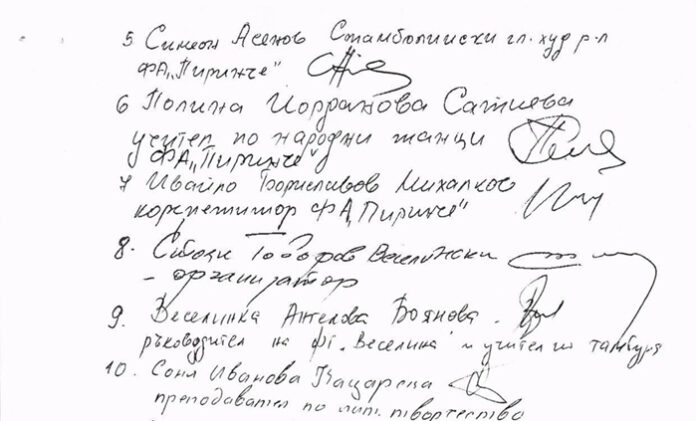 5 Симеон Асенов Стамболийски гл. худ р-л
ФА „Пиринче“
6 Полина Йорданова Сатиева
учител по народни танци
ФА „Пиринче“
7 Ивайло Бориславов Михалков
корепетитор ФА „Пиринче“
8. Стоян Тодоров
- организатор
9. Веселинка Ангелова Боянова -
ръководител на фг. „Веселина“ и учител по тамбура
10. Соня Иванова Кацарска
преподавател по лит. творчество